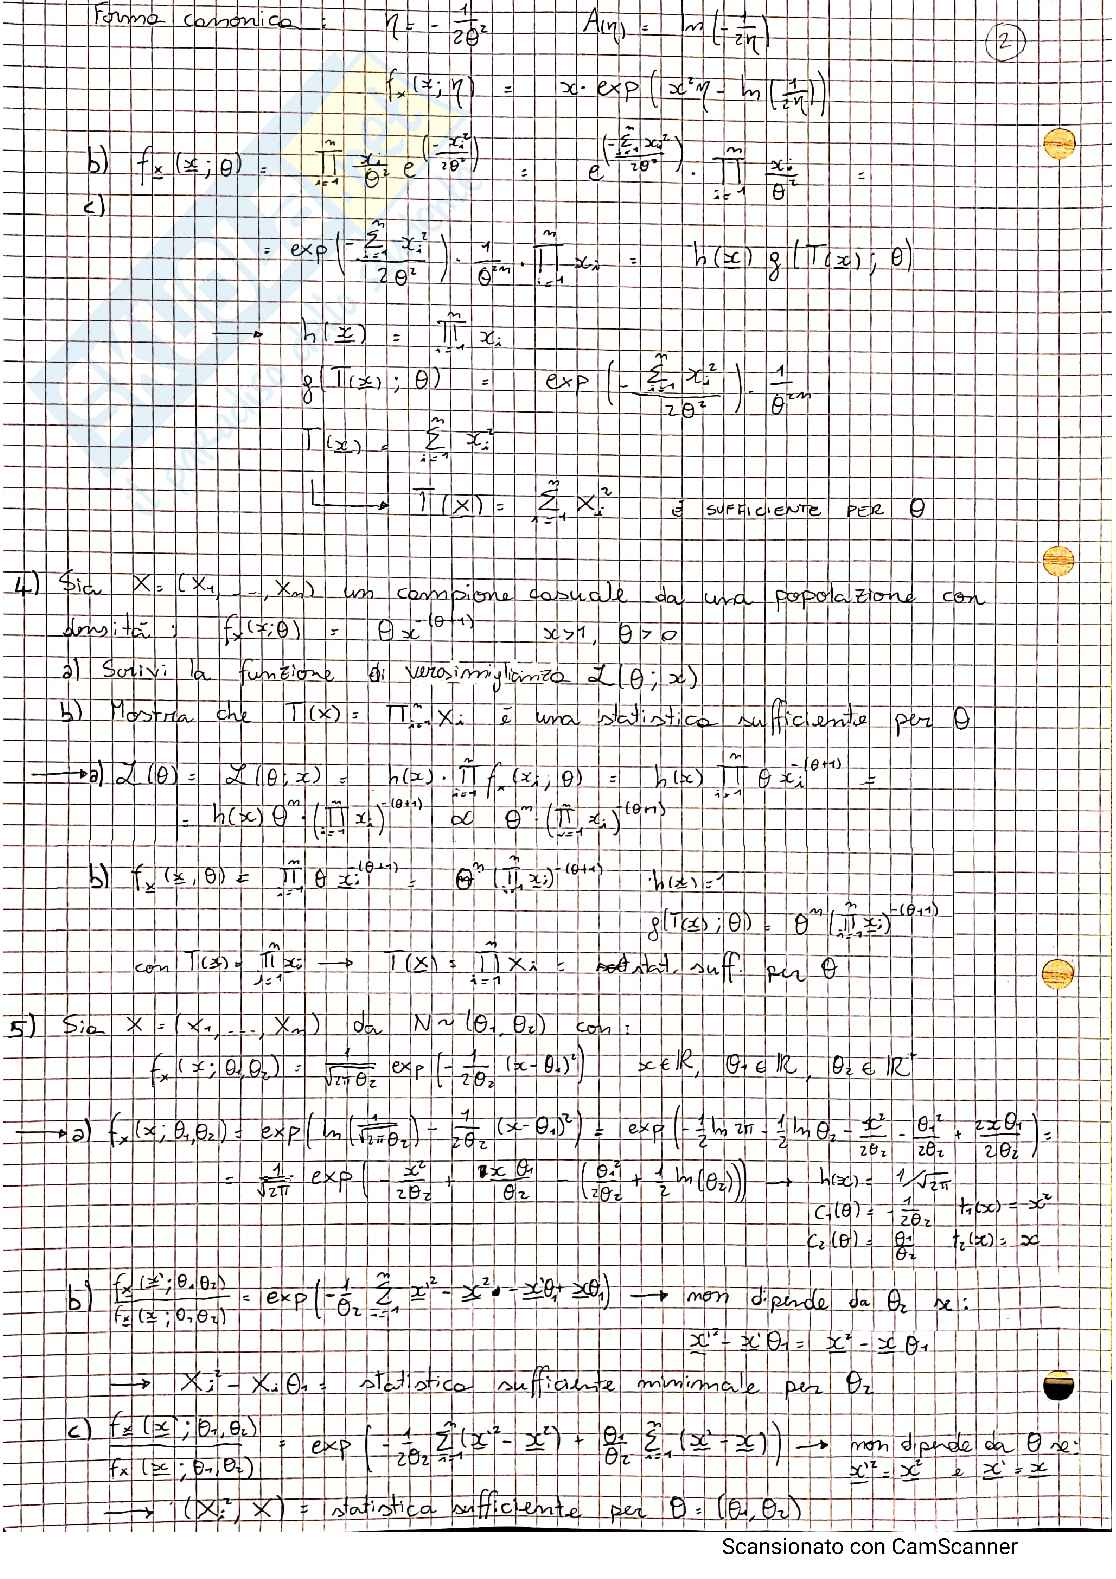 Forma canonica : η = - 1/2θ² A(η) = ln(-1/2η)
2
fx(x; η) = x · exp(x²η - ln(1/2η))
b) fx(x; θ) = ∏_{i=1}^n xi/θ² e^(-xi²/2θ²) = e^(-∑_{i=1}^n xi²/2θ²) · ∏_{i=1}^n xi/θ² =
c)
= exp(-∑_{i=1}^n xi²/2θ²) · 1/θ^{2n} · ∏_{i=1}^n xi = h(x) g(T(x); θ)
→ h(x) = ∏_{i=1}^n xi
g(T(x); θ) = exp(-∑_{i=1}^n xi²/2θ²) · 1/θ^{2n}
T(x) = ∑_{i=1}^n xi²
↳ T(X) = ∑_{i=1}^n Xi² è SUFFICIENTE PER θ
4) Sia X = (X1, ..., Xn) un campione casuale da una popolazione con
densità : fx(x;θ) = θ x^{-(θ+1)} x>1, θ>0
a) Scrivi la funzione di verosimiglianza L(θ; x)
b) Mostra che T(X) = ∏_{i=1}^n Xi è una statistica sufficiente per θ
→ a) L(θ) = L(θ; x) = h(x) · ∏_{i=1}^n fx(xi, θ) = h(x) ∏_{i=1}^n θ xi^{-(θ+1)} =
= h(x) θ^n · (∏_{i=1}^n xi)^{-(θ+1)} ∝ θ^n · (∏_{i=1}^n xi)^{-(θ+1)}
b) fx(x, θ) = ∏_{i=1}^n θ xi^{-(θ+1)} = θ^n (∏_{i=1}^n xi)^{-(θ+1)} h(x)=1
g(T(x); θ) = θ^n (∏_{i=1}^n xi)^{-(θ+1)}
con T(x) = ∏_{i=1}^n xi → T(X) = ∏_{i=1}^n Xi = stat. suff. per θ
5) Sia X = (X1, ..., Xn) da N ~ (θ1, θ2) con :
fx(x; θ1, θ2) = 1/√2πθ2 exp(-1/2θ2 (x-θ1)²) x ∈ ℝ, θ1 ∈ ℝ, θ2 ∈ ℝ⁺
→ a) fx(x; θ1, θ2) = exp(ln(1/√2πθ2) - 1/2θ2 (x-θ1)²) = exp(-1/2 ln 2π - 1/2 ln θ2 - x²/2θ2 - θ1²/2θ2 + 2xθ1/2θ2) =
= 1/√2π · exp(-x²/2θ2 + xθ1/θ2 - (θ1²/2θ2 + 1/2 ln(θ2))) → h(x) = 1/√2π
c1(θ) = -1/2θ2 t1(x) = x²
c2(θ) = θ1/θ2 t2(x) = x
b) fx(x'; θ1, θ2)/fx(x; θ1, θ2) = exp(-1/θ2 ∑_{i=1}^n x'² - x² - x'θ1 + xθ1) → non dipende da θ2 se :
x'² - x'θ1 = x² - xθ1
→ Xi² - Xiθ1 = statistica sufficiente minimale per θ2
c) fx(x'; θ1, θ2)/fx(x; θ1, θ2) = exp(-1/2θ2 ∑_{i=1}^n (x'² - x²) + θ1/θ2 ∑_{i=1}^n (x' - x)) → non dipende da θ se :
x'² = x² e x' = x
→ (Xi², X) = statistica sufficiente per θ = (θ1, θ2)
Scansionato con CamScanner